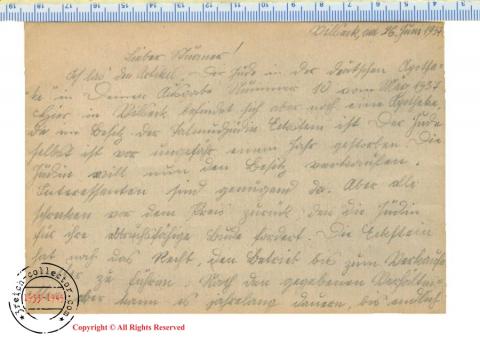 Vilseck, am 26. Juni 1937
Lieber Stürmer!
Ich las den Artikel „Der Jude in der deutschen Apothe-
ke" in Deiner Ausgabe Nummer 10 vom März 1937.
Hier in Vilseck befindet sich aber noch eine Apotheke,
die im Besitz der Talmudjüdin Eckstein ist. Der Jude
selbst ist vor ungefähr einem Jahr gestorben. Die
Jüdin will nun den Besitz verkaufen.
Interessenten sind genügend da. Aber alle
schrecken vor dem Preis zurück, den die Jüdin
für ihre Bude fordert. Die Eckstein
hat noch das Recht, den Betrieb bis zum Verkaufe
zu führen. Nach den gegebenen Verhältnis-
aber kann es jahrelang dauern, bis endlich
3reich-collector.com
1933-1945
Copyright © All Rights Reserved